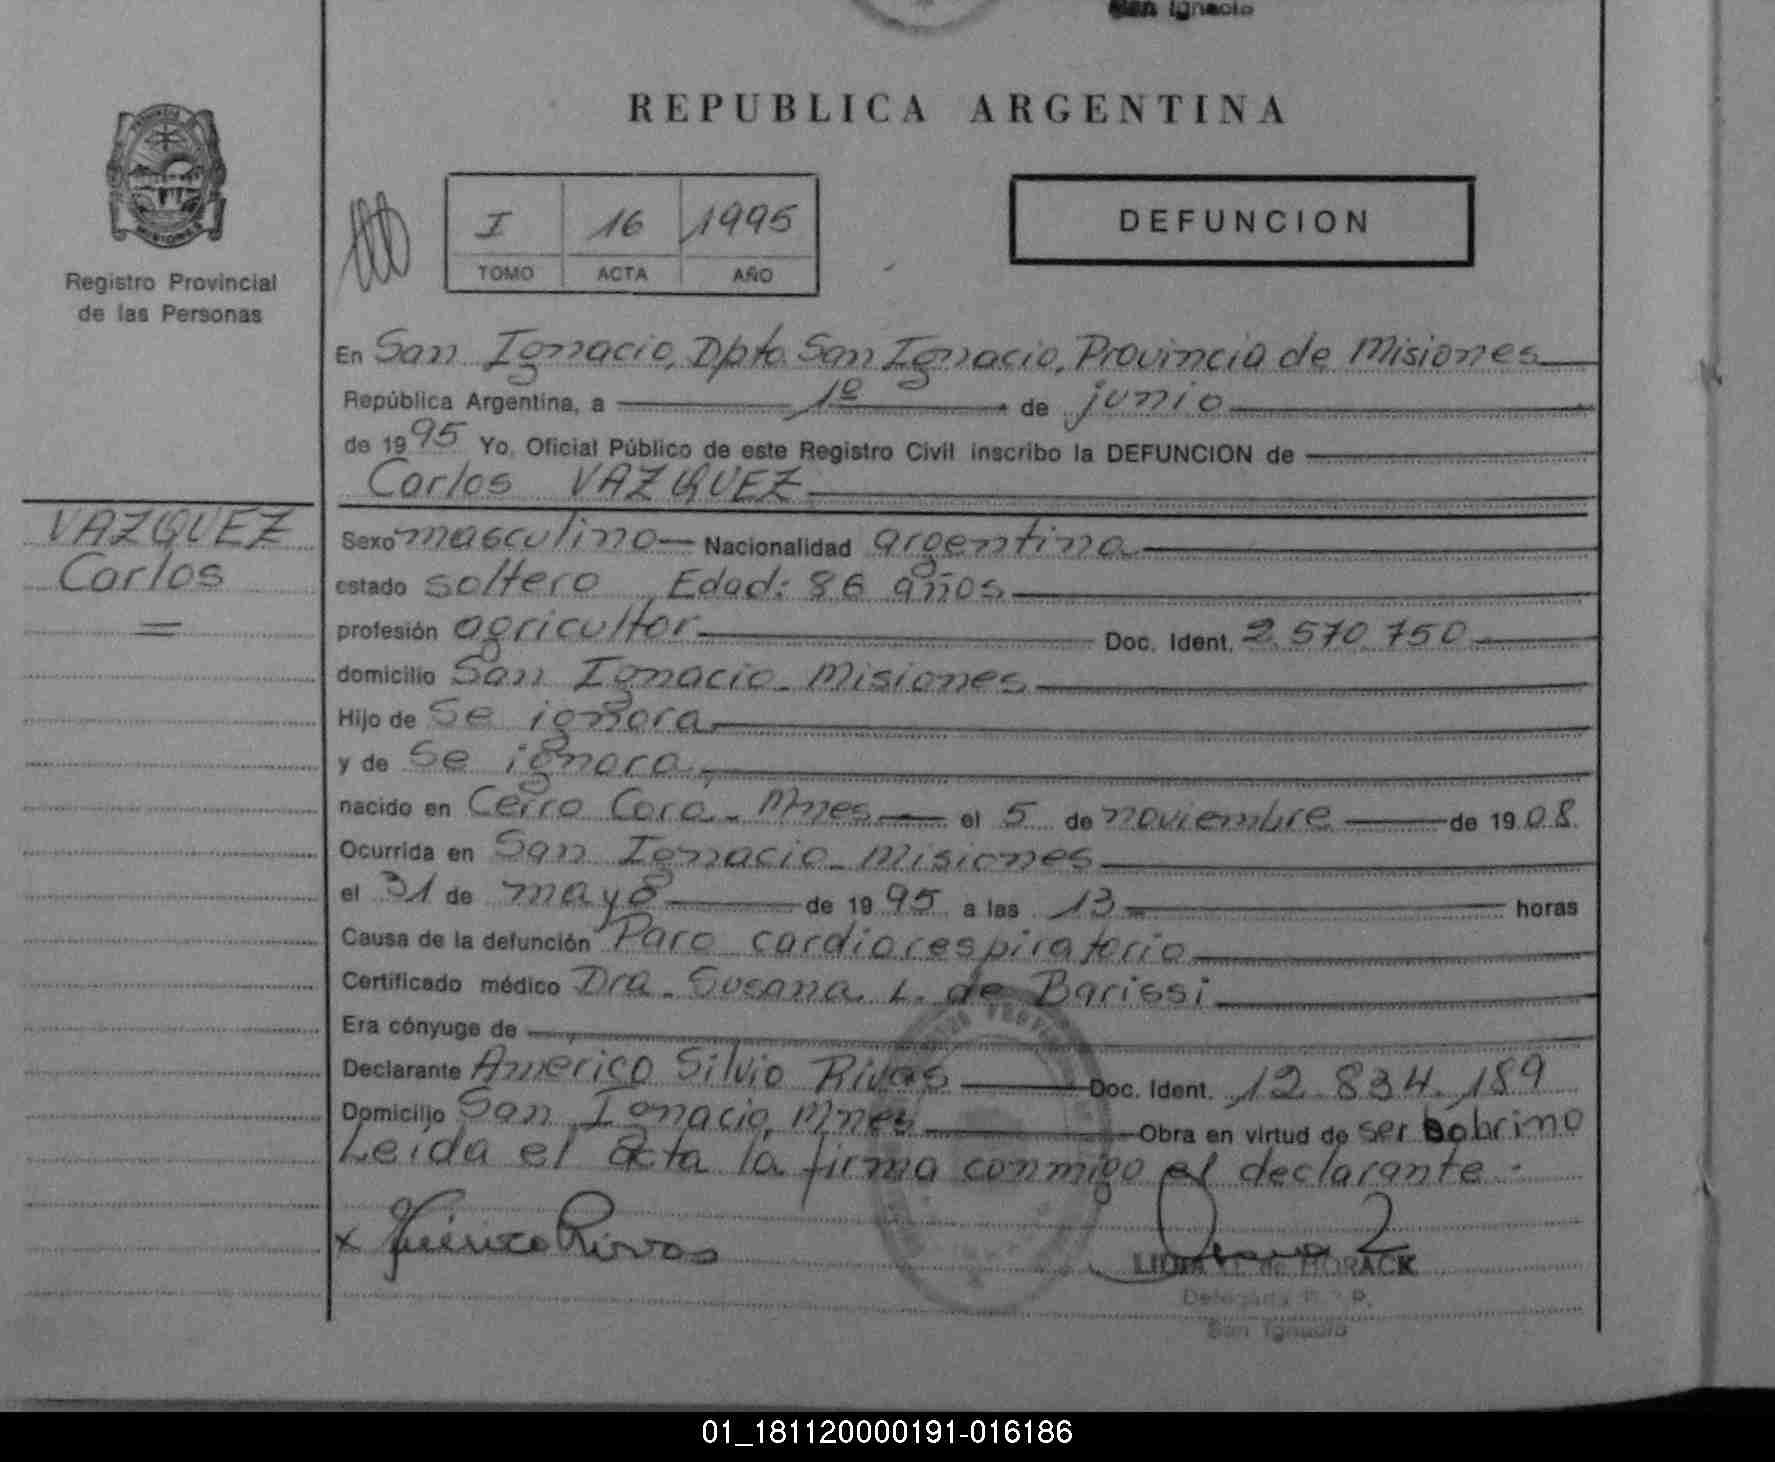 San Ignacio
REPUBLICA ARGENTINA
I 16 1995
TOMO ACTA AÑO
DEFUNCION
MISIONES
Registro Provincial
de las Personas
En San Ignacio, Dpto. San Ignacio, Provincia de Misiones
República Argentina, a 1º de junio
de 1995 Yo, Oficial Público de este Registro Civil inscribo la DEFUNCION de
Carlos VAZQUEZ
VAZQUEZ
Carlos
=
Sexo masculino Nacionalidad argentina
estado soltero Edad: 86 años
profesión agricultor Doc. Ident. 2.570.750
domicilio San Ignacio - Misiones
Hijo de Se ignora
y de Se ignora
nacido en Cerro Corá - Mnes el 5 de noviembre de 1908
Ocurrida en San Ignacio - Misiones
el 31 de mayo de 1995 a las 13 horas
Causa de la defunción Paro cardiorespiratorio
Certificado médico Dra. Susana L. de Barissi
Era cónyuge de
Declarante Americo Silvio Rivas Doc. Ident. 12.834.189
Domicilio San Ignacio, Mnes Obra en virtud de ser sobrino
Leida el acta la firma conmigo el declarante.
x Américo Rivas
de HORACK
Delegada R. P.
San Ignacio
01_181120000191-016186